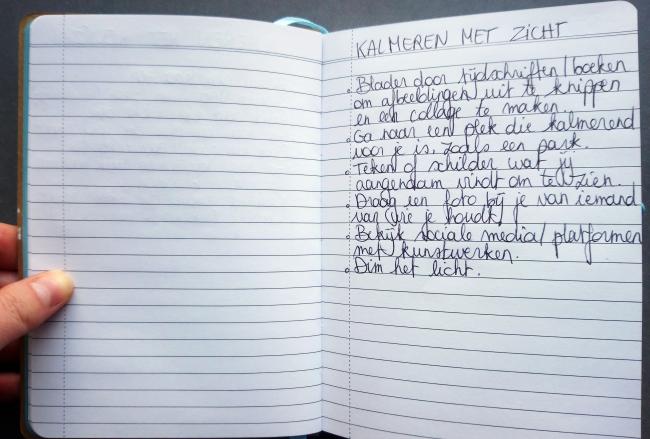 KALMEREN MET ZICHT
• Blader door tijdschriften/boeken
om afbeeldingen uit te knippen
en een collage te maken.
• Ga naar een plek die kalmerend
voor je is, zoals een park.
• Teken of schilder wat jij
aangenaam vindt om te zien.
• Draag een foto bij je van iemand
van wie je houdt.
• Bekijk sociale media/platformen
met kunstwerken.
• Dim het licht.